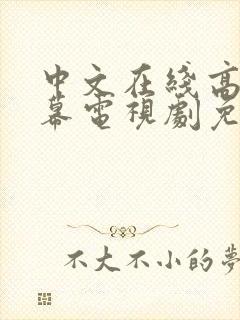 中文在綫高
幕電視劇免
不大不小的夢